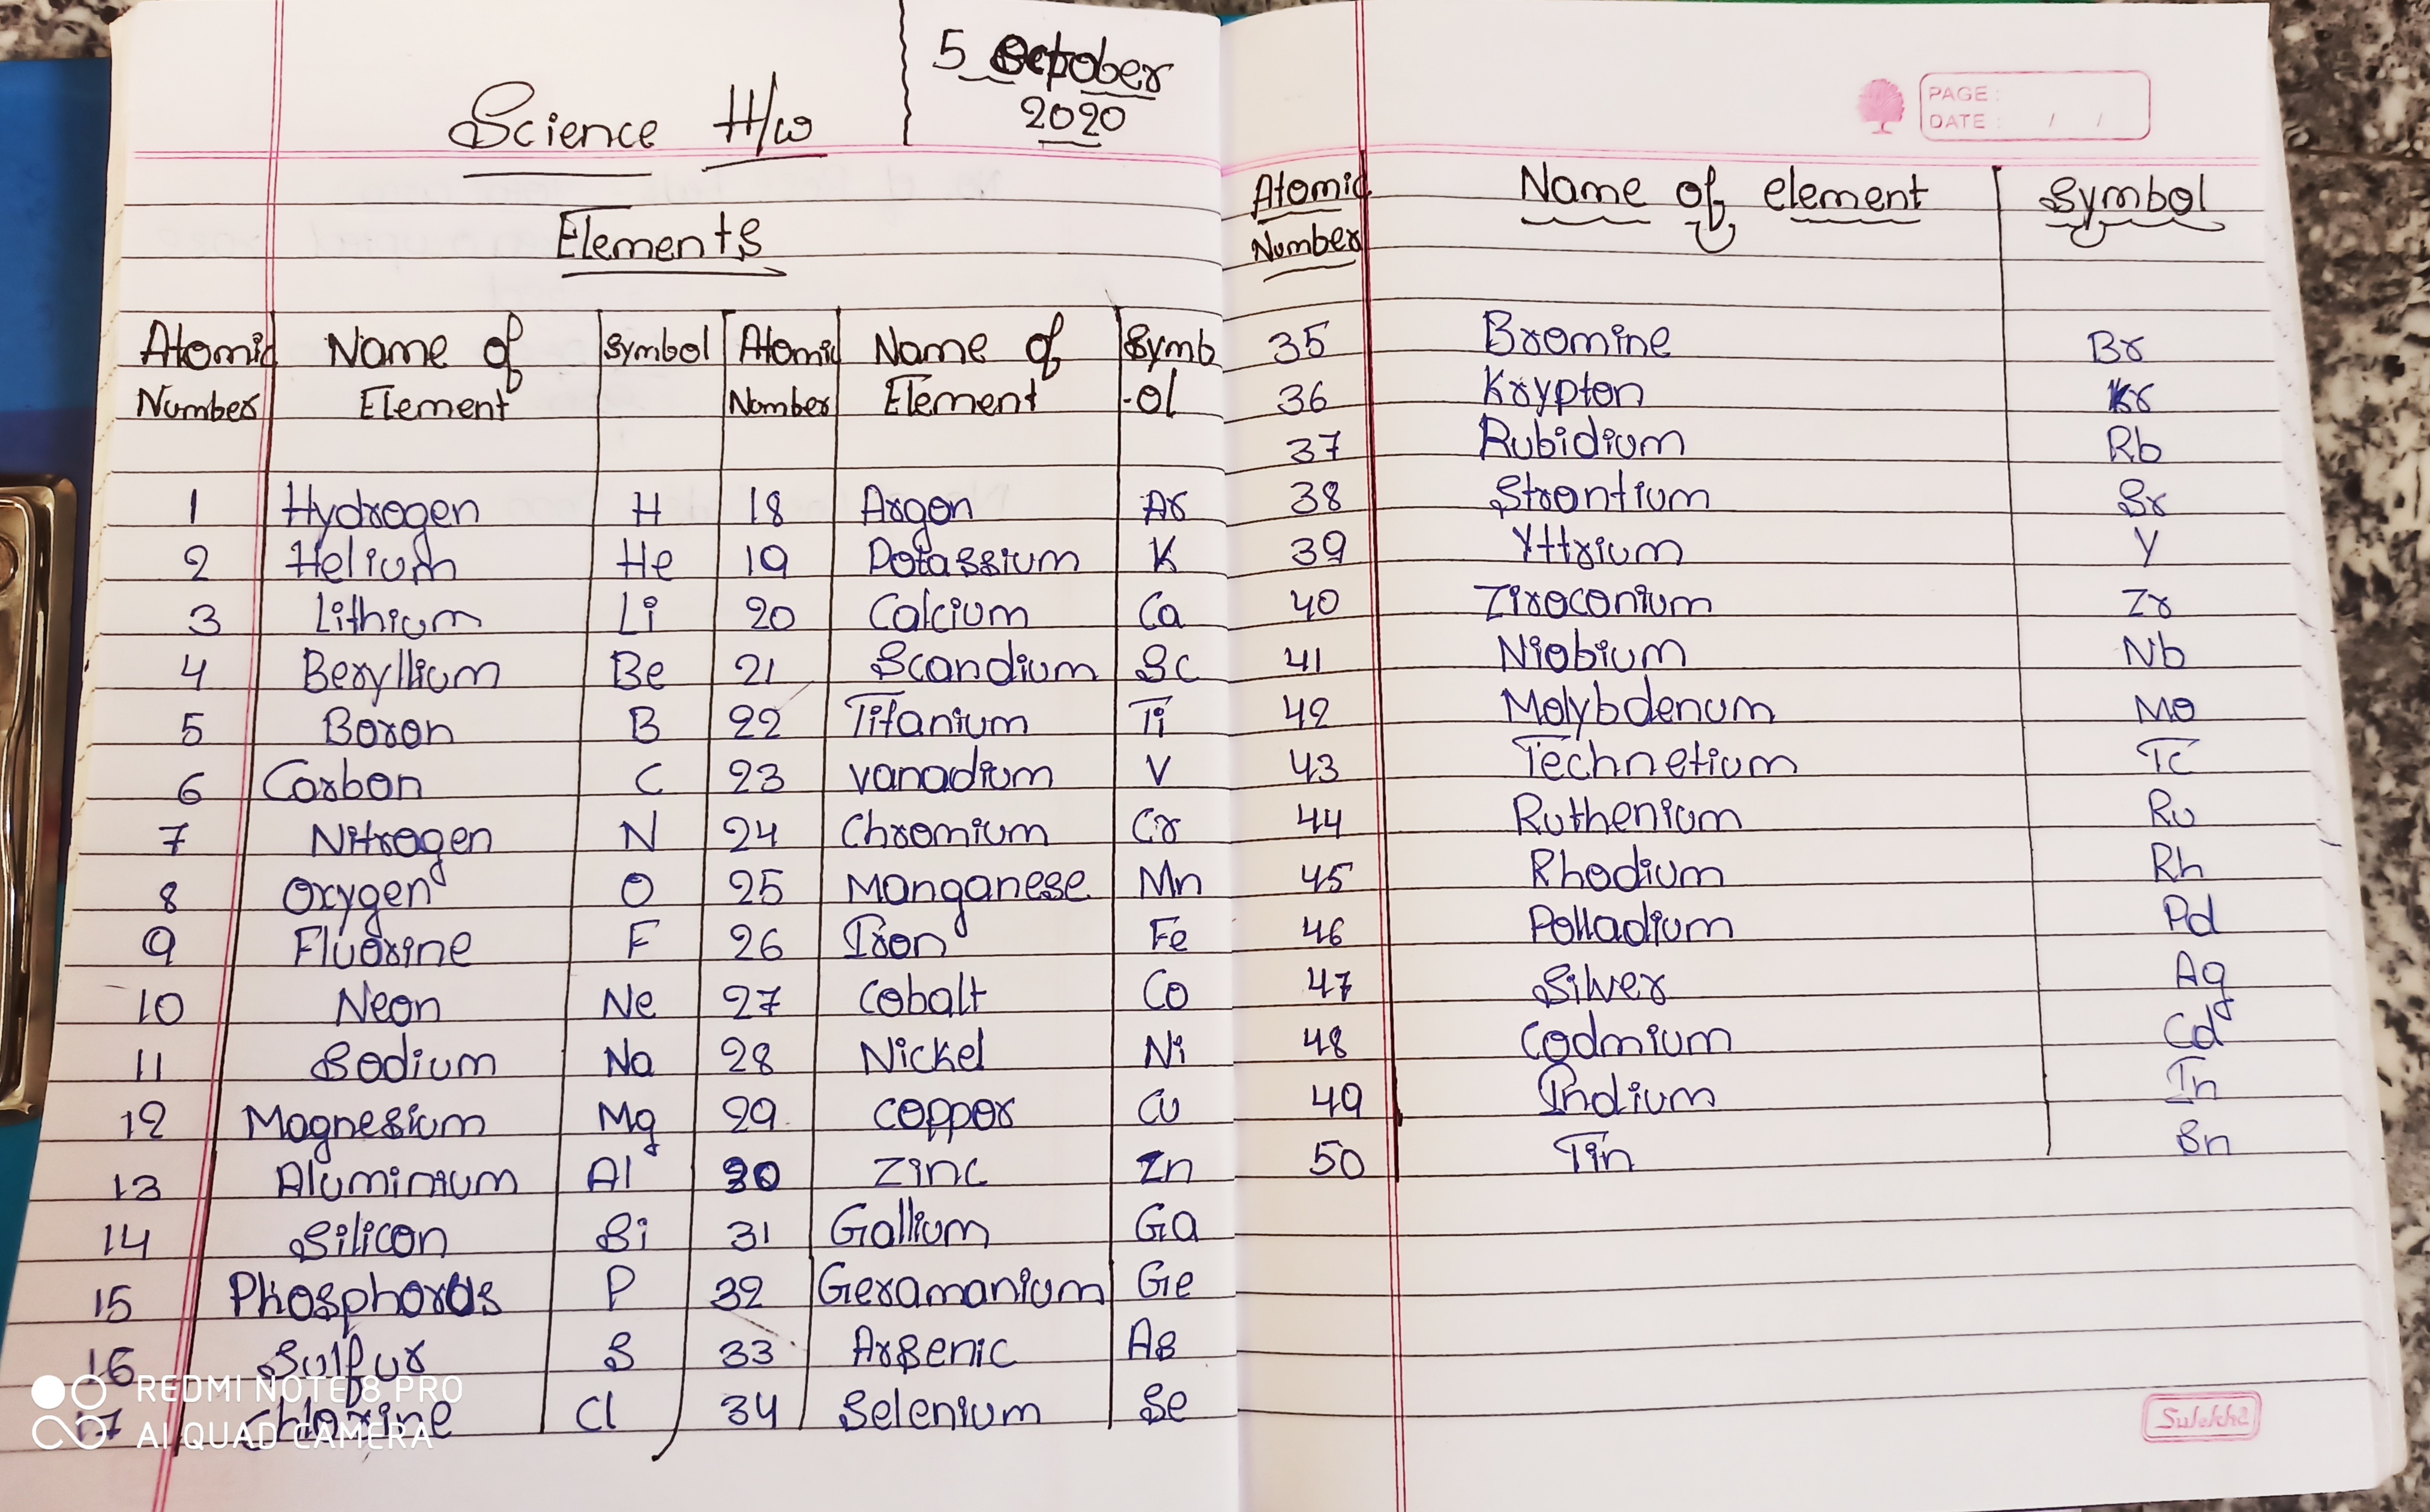 Science H/w
5 October
2020
Elements
Atomic Number | Name of Element | Symbol | Atomic Number | Name of Element | Symb-ol
1 Hydrogen H 18 Argon Ar
2 Helium He 19 Potassium K
3 Lithium Li 20 Calcium Ca
4 Beryllium Be 21 Scandium Sc
5 Boron B 22 Titanium Ti
6 Carbon C 23 vanadium V
7 Nitrogen N 24 Chromium Cr
8 Oxygen O 25 Manganese Mn
9 Fluorine F 26 Iron Fe
10 Neon Ne 27 Cobalt Co
11 Sodium Na 28 Nickel Ni
12 Magnesium Mg 29 Coppor Cu
13 Aluminium Al 30 Zinc Zn
14 Silicon Si 31 Gallium Ga
15 Phosphorus P 32 Geramanium Ge
16 Sulfur S 33 Arsenic As
17 Chlorine Cl 34 Selenium Se
REDMI NOTE 8 PRO
AI QUAD CAMERA
PAGE:
DATE: / /
Atomic Number | Name of element | Symbol
35 Bromine Br
36 Krypton Kr
37 Rubidium Rb
38 Strontium Sr
39 Yttrium Y
40 Ziroconium Zr
41 Niobium Nb
42 Molybdenum Mo
43 Technetium Tc
44 Ruthenium Ru
45 Rhodium Rh
46 Palladium Pd
47 Silver Ag
48 Cadmium Cd
49 Indium In
50 Tin Sn
Sulekha